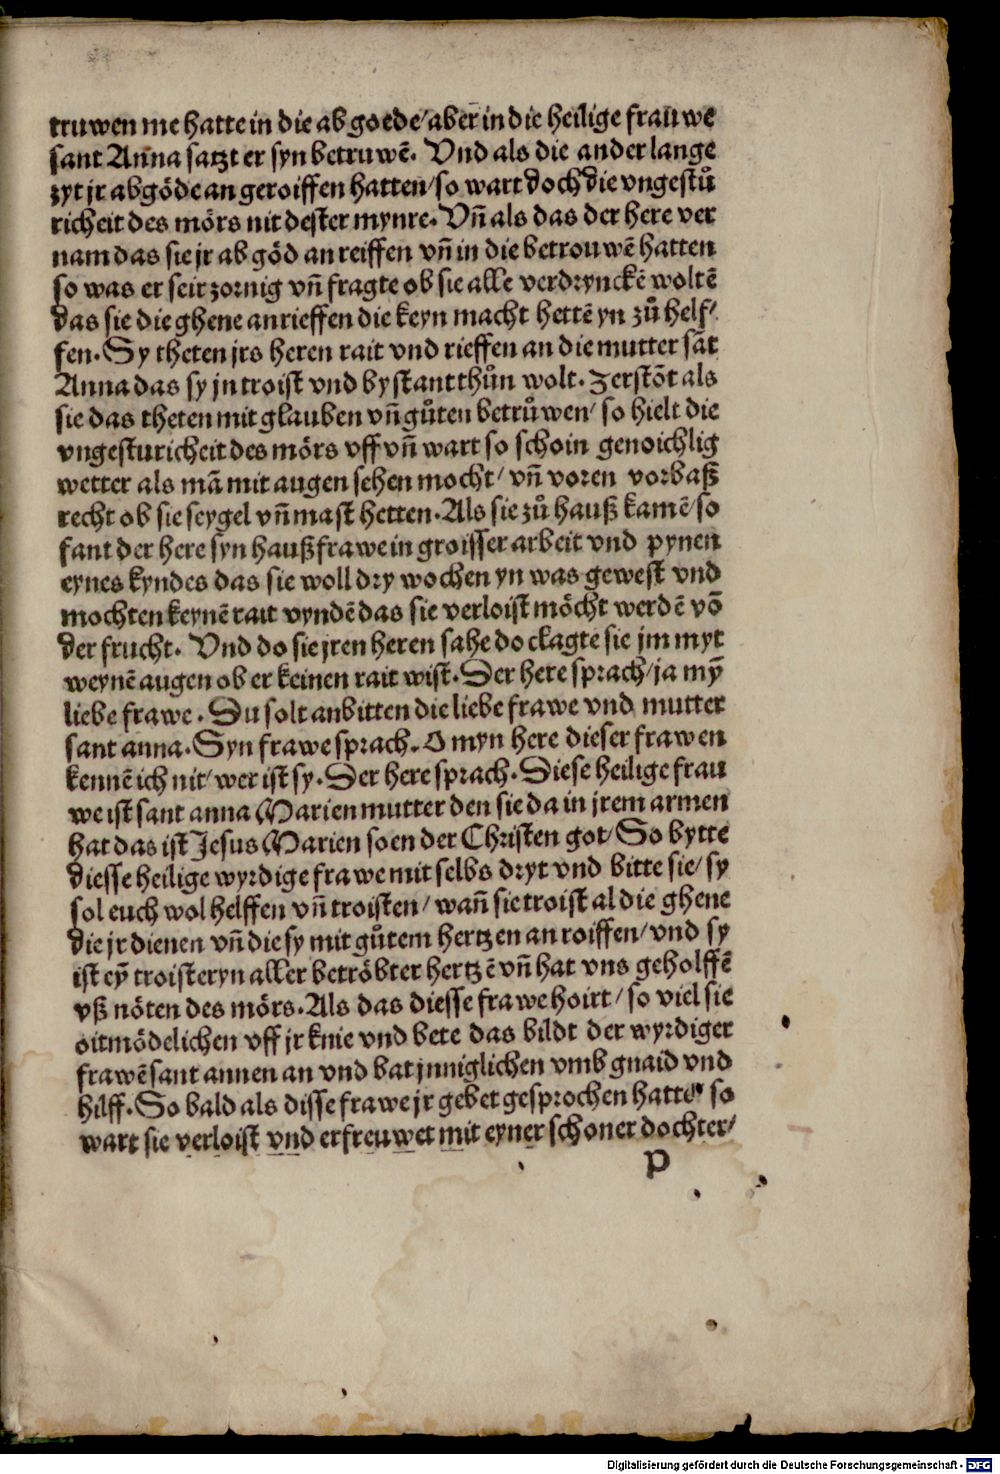 truwen me hatte in die abgoede/ aber in die heilige frauwe
sant Anna satzt er syn betruwē. Vnd als die ander lange
zyt jr abgöde an geroiffen hatten/ so wart doch die vngestů
richeit des mörs nit dester mynre. Vn̄ als das der here ver
nam das sie jr abgöd an reiffen vn̄ in die betrouwē hatten
so was er seir zornig vn̄ fragte ob sie alle verdrynckē woltē
das sie die ghene anrieffen die keyn macht hettē yn zů helf/
fen. Sy theten jrs heren rait vnd rieffen an die mutter sāt
Anna das sy jn troist vnd bystant thůn wolt. Zerstōt als
sie das theten mit glauben vn̄ gůten betrůwen/ so hielt die
vngesturicheit des mörs vff vn̄ wart so schoin genoichlig
wetter als mā mit augen sehen mocht/ vn̄ voren vorbaß
recht ob sie seygel vn̄ mast hetten. Als sie zů hauß kamē/ so
fant der here syn haußfrawe in groisser arbeit vnd pynen
eynes kyndes das sie woll dry wochen yn was gewest vnd
mochten keynē rait vyndē das sie verloist möcht werdē vō
der frucht. Vnd do sie jren heren sahe do clagte sie jm myt
weynē augen ob er keinen rait wist. Der here sprach/ ja mȳ
liebe frawe. Du solt anbitten die liebe frawe vnd mutter
sant anna. Syn frawe sprach. O myn here dieser frawen
kennē ich nit/ wer ist sy. Der here sprach. Diese heilige frau
we ist sant anna Marien mutter den sie da in jrem armen
hat das ist Jesus Marien soen der Christen got/ So bytte
diesse heilige wyrdige frawe mit selbs dryt vnd bitte sie/ sy
sol euch wol helffen vn̄ troisten/ wan̄ sie troist al die ghene
die jr dienen vn̄ die sy mit gůtem hertzen an roiffen/ vnd sy
ist eȳ troisteryn aller betröbter hertzē vn̄ hat vns geholffē
vß nöten des mörs. Als das diesse frawe hoirt/ so viel sie
oitmödelichen vff jr knie vnd bete das bildt der wyrdiger
frawē sant annen an vnd bat jnniglichen vmb gnaid vnd
hilff. So bald als disse frawe jr gebet gesprochen hatte/ so
wart sie verloist vnd erfreuwet mit eyner schoner dochter/
p
Digitalisierung gefördert durch die Deutsche Forschungsgemeinschaft - DFG